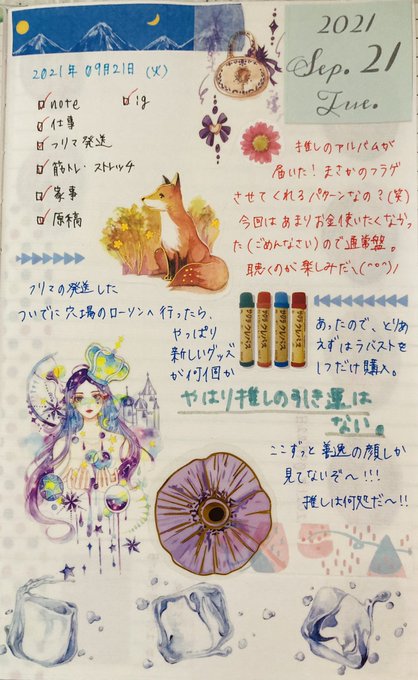 2021
Sep. 21
Tue.
2021年 09月21日 (火)
note
ig
仕事
フリマ発送
筋トレ・ストレッチ
家事
原稿
推しのアルバムが
届いた！まさかのフラゲ
させてくれるパターンなの？(笑)
今回はあまりお金使いたくなかっ
た(ごめんなさい)ので通常盤。
聴くのが楽しみだ＼(^o^)／
フリマの発送した
ついでに穴場のローソンへ行ったら、
やっぱり
新しいグッズ
が何個か
あったので、とりあ
えずはラバストを
1つだけ購入。
やはり推しの引き運は
ない。
ここずっと善逸の顔しか
見てないぞ〜!!!
推しは何処だ〜!!